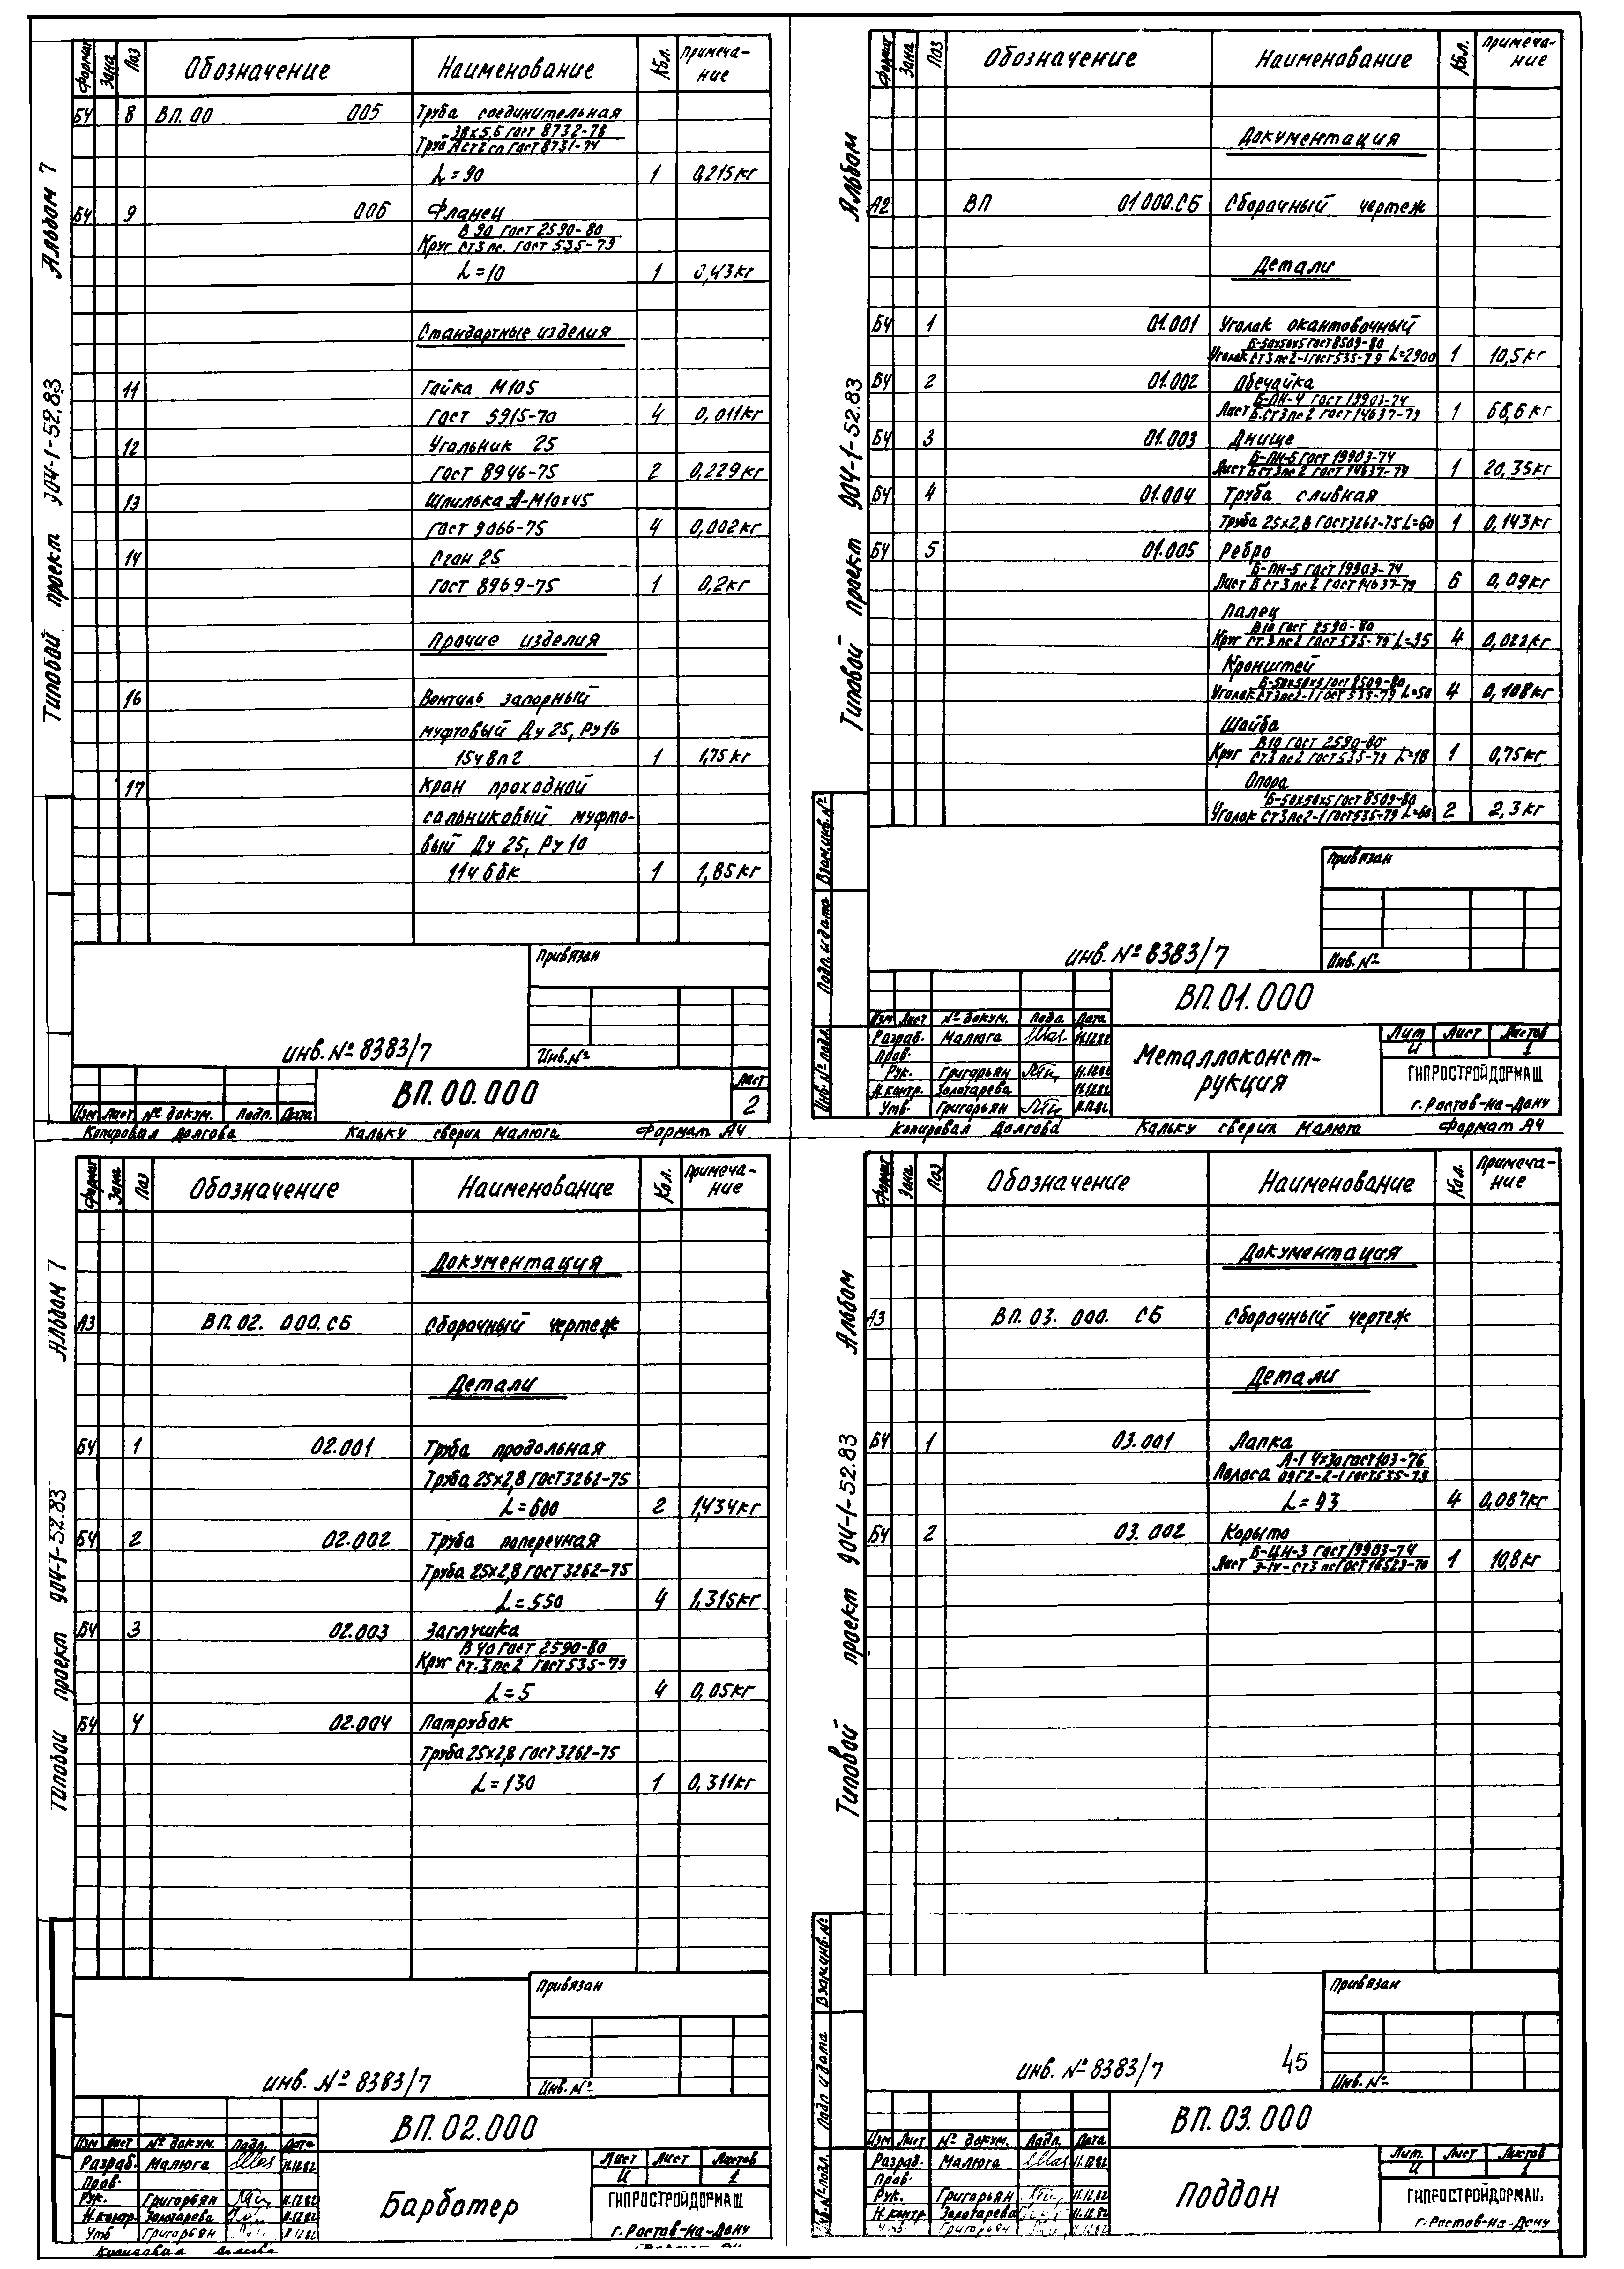 Альбом 7
Типовой проект 904-1-52.83
Формат Зона Поз Обозначение Наименование Кол. Примеча-
ние
БЧ 8 ВП.00 005 Труба соединительная
38х5,6 ГОСТ 8732-78
Труба Аст2сп ГОСТ 8731-74
L=90 1 0,215кг
БЧ 9 006 Фланец
В 90 ГОСТ 2590-80
Круг Ст3пс. ГОСТ 535-79
L=10 1 0,43кг
Стандартные изделия
11 Гайка М105
ГОСТ 5915-70 4 0,011кг
12 Угольник 25
ГОСТ 8946-75 2 0,229кг
13 Шпилька А-М10х45
ГОСТ 9066-75 4 0,002кг
14 Сгон 25
ГОСТ 8969-75 1 0,2кг
Прочие изделия
16 Вентиль запорный
муфтовый Ду 25, Ру16
15ч8п2 1 1,75кг
17 Кран проходной
сальниковый муфто-
вый Ду 25, Ру 10
11ч6бк 1 1,85кг
Привязан
инв. № 8383/7
Инв.№
ВП.00.000
Лист
2
Изм Лист № докум. Подп. Дата
Копировал Долгова Кальку сверил Малюга Формат А4
Альбом
Типовой проект 904-1-52.83
Формат Зона Поз Обозначение Наименование Кол. Примеча-
ние
Документация
А2 ВП 01 000.СБ Сборочный чертеж
Детали
БЧ 1 01.001 Уголок окантовочный
Б-50х50х5 ГОСТ 8509-80
Уголок Ст3пс2-1 ГОСТ 535-79 L=2900 1 10,5кг
БЧ 2 01.002 Обечайка
Б-ПН-4 ГОСТ 19903-74
Лист Б.Ст3пс2 ГОСТ 14637-79 1 68,6кг
БЧ 3 01.003 Днище
Б-ПН-5 ГОСТ 19903-74
Лист БСт3пс2 ГОСТ 14637-79 1 20,35кг
БЧ 4 01.004 Труба сливная
Труба 25х2,8 ГОСТ 3262-75 L=60 1 0,143кг
БЧ 5 01.005 Ребро
Б-ПН-5 ГОСТ 19903-74
Лист БСт3пс2 ГОСТ 14637-79 6 0,09кг
Палец
В10 ГОСТ 2590-80
Круг Ст.3пс2 ГОСТ 535-79 L=35 4 0,022кг
Кронштей
Б-50х50х5 ГОСТ 8509-80
Уголок Ст3пс2-1 ГОСТ 535-79 L=50 4 0,108кг
Шайба
В10 ГОСТ 2590-80
Круг Ст.3пс2 ГОСТ 535-79 L=18 1 0,75кг
Опора
Б-50х50х5 ГОСТ 8509-80
Уголок Ст3пс2-1 ГОСТ 535-79 L=60 2 2,3кг
Взам.инв.№
Подп. и дата
Инв.№ подл.
Привязан
инв. № 8383/7
Инв. №
ВП.01.000
Изм Лист № докум. Подп. Дата
Разраб. Малюга 11.12.82
Пров.
Рук. Григорьян 11.12.82
Н.контр. Золотарева 11.12.82
Утв. Григорьян 11.12.82
Металлоконст-
рукция
Лит Лист Листов
И 1
ГИПРОСТРОЙДОРМАШ
г. Ростов-на-Дону
Копировал Долгова Кальку сверил Малюга Формат А4
Альбом 7
Типовой проект 904-1-52.83
Формат Зона Поз Обозначение Наименование Кол. Примеча-
ние
Документация
А3 ВП.02. 000.СБ Сборочный чертеж
Детали
БЧ 1 02.001 Труба продольная
Труба 25х2,8 ГОСТ 3262-75
L=600 2 1,434кг
БЧ 2 02.002 Труба поперечная
Труба 25х2,8 ГОСТ 3262-75
L=550 4 1,315кг
БЧ 3 02.003 Заглушка
В 40 ГОСТ 2590-80
Круг Ст.3пс2 ГОСТ 535-79
L=5 4 0,05кг
БЧ 4 02.004 Патрубок
Труба 25х2,8 ГОСТ 3262-75
L=130 1 0,311кг
Привязан
инв. № 8383/7
Инв.№
ВП.02.000
Изм Лист № докум. Подп. Дата
Разраб. Малюга 11.12.82
Пров.
Рук. Григорьян 11.12.82
Н.контр. Золотарева 11.12.82
Утв Григорьян 11.12.82
Барботер
Лист Лист Листов
И 1
ГИПРОСТРОЙДОРМАШ
г. Ростов-на-Дону
Копировал Долгова
Альбом
Типовой проект 904-1-52.83
Формат Зона Поз Обозначение Наименование Кол. Примеча-
ние
Документация
А3 ВП.03. 000. СБ Сборочный чертеж
Детали
БЧ 1 03.001 Лапка
А-1 4х30 ГОСТ 103-76
Полоса 09Г2-2-1 ГОСТ 535-79
L=93 4 0,087кг
БЧ 2 03.002 Корыто
Б-ЦН-3 ГОСТ 19903-74
Лист 3-IV-Ст3пс ГОСТ 16523-70 1 10,8кг
Взам.инв.№
Подп. и дата
Инв.№ подл.
Привязан
инв. № 8383/7 45
Инв. №
ВП.03.000
Изм Лист № докум. Подп. Дата
Разраб. Малюга 11.12.82
Пров.
Рук. Григорьян 11.12.82
Н.контр Золотарева 11.12.82
Утв Григорьян 11.12.82
Поддон
Лит. Лист Листов
И 1
ГИПРОСТРОЙДОРМАШ
г. Ростов-на-Дону